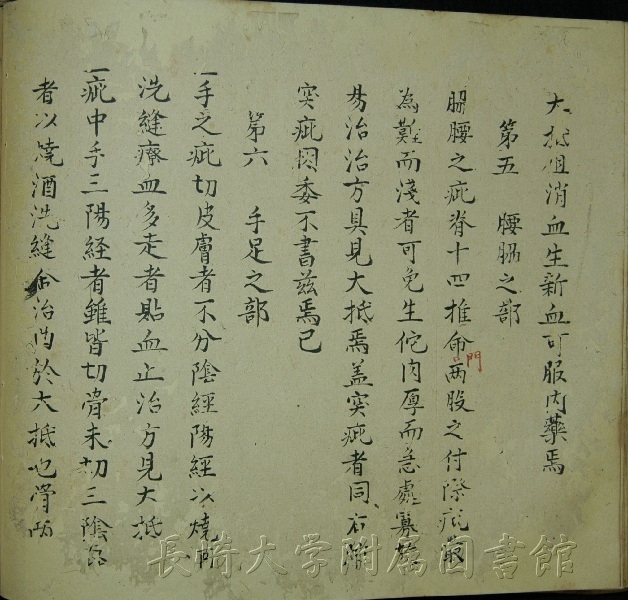 大抵但消血生新血可服内藥焉
第五 腰脇之部
脇腰之疵脊十四推命門両股之付際疵最
為難而淺者可免生佗肉厚而急處寡故
易治治方具見大抵焉盖突疵者同右
突疵図委不書兹焉已
第六 手足之部
一手之疵切皮膚者不分陰經陽經以焼酒
洗縫療血多走者貼血止治方見大抵
一疵中手三陽経者雖皆切骨未切三陰
者以焼酒洗縫合治由於大抵也骨両
長崎大学附属図書館